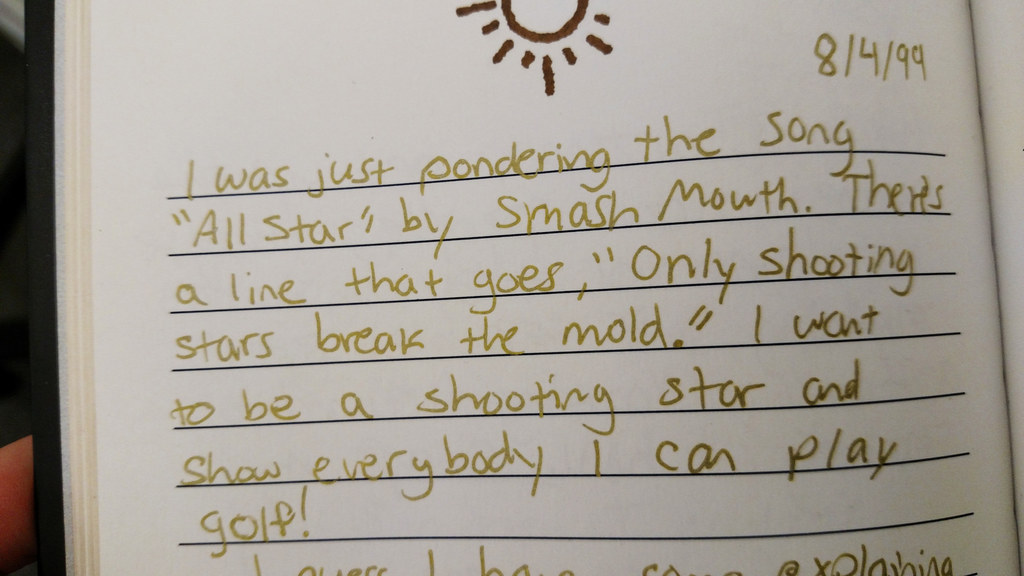 8/4/99
I was just pondering the song
"All Star" by Smash Mouth. There's
a line that goes, "Only shooting
stars break the mold." I want
to be a shooting star and
show everybody I can play
golf!
I guess I have some explaining